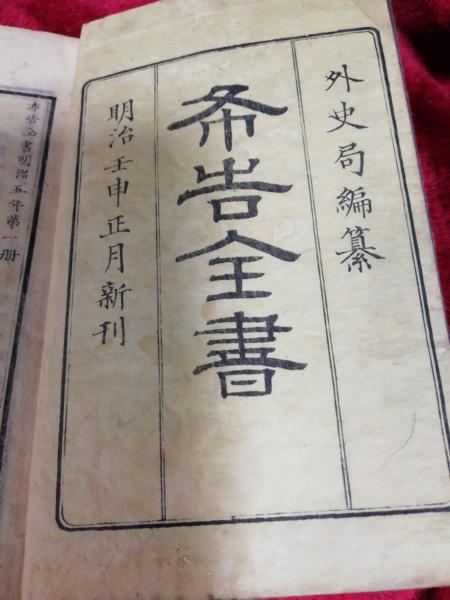 外史局編纂
布告全書
明治壬申正月新刊
布告全書明治五年第一册